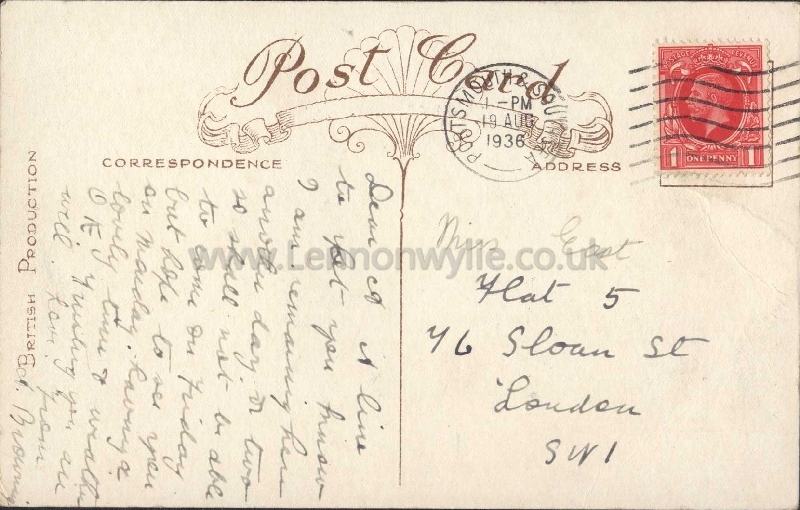 Post Card
PORTSMOUTH & SOUTHSEA
1 - PM
19 AUG
1936
POSTAGE REVENUE
1 ONE PENNY 1
CORRESPONDENCE
ADDRESS
BRITISH PRODUCTION
Dear A A line
to let you know
I am remaining here
another day or two
so shall not be able
to come on Friday
but hope to see you
on Monday. Having a
lovely time & weather
O.K. Trusting you are
well. Love from
A. Browning
Miss East
Flat 5
76 Sloan St
London
SW1
www.Lennonwylie.co.uk